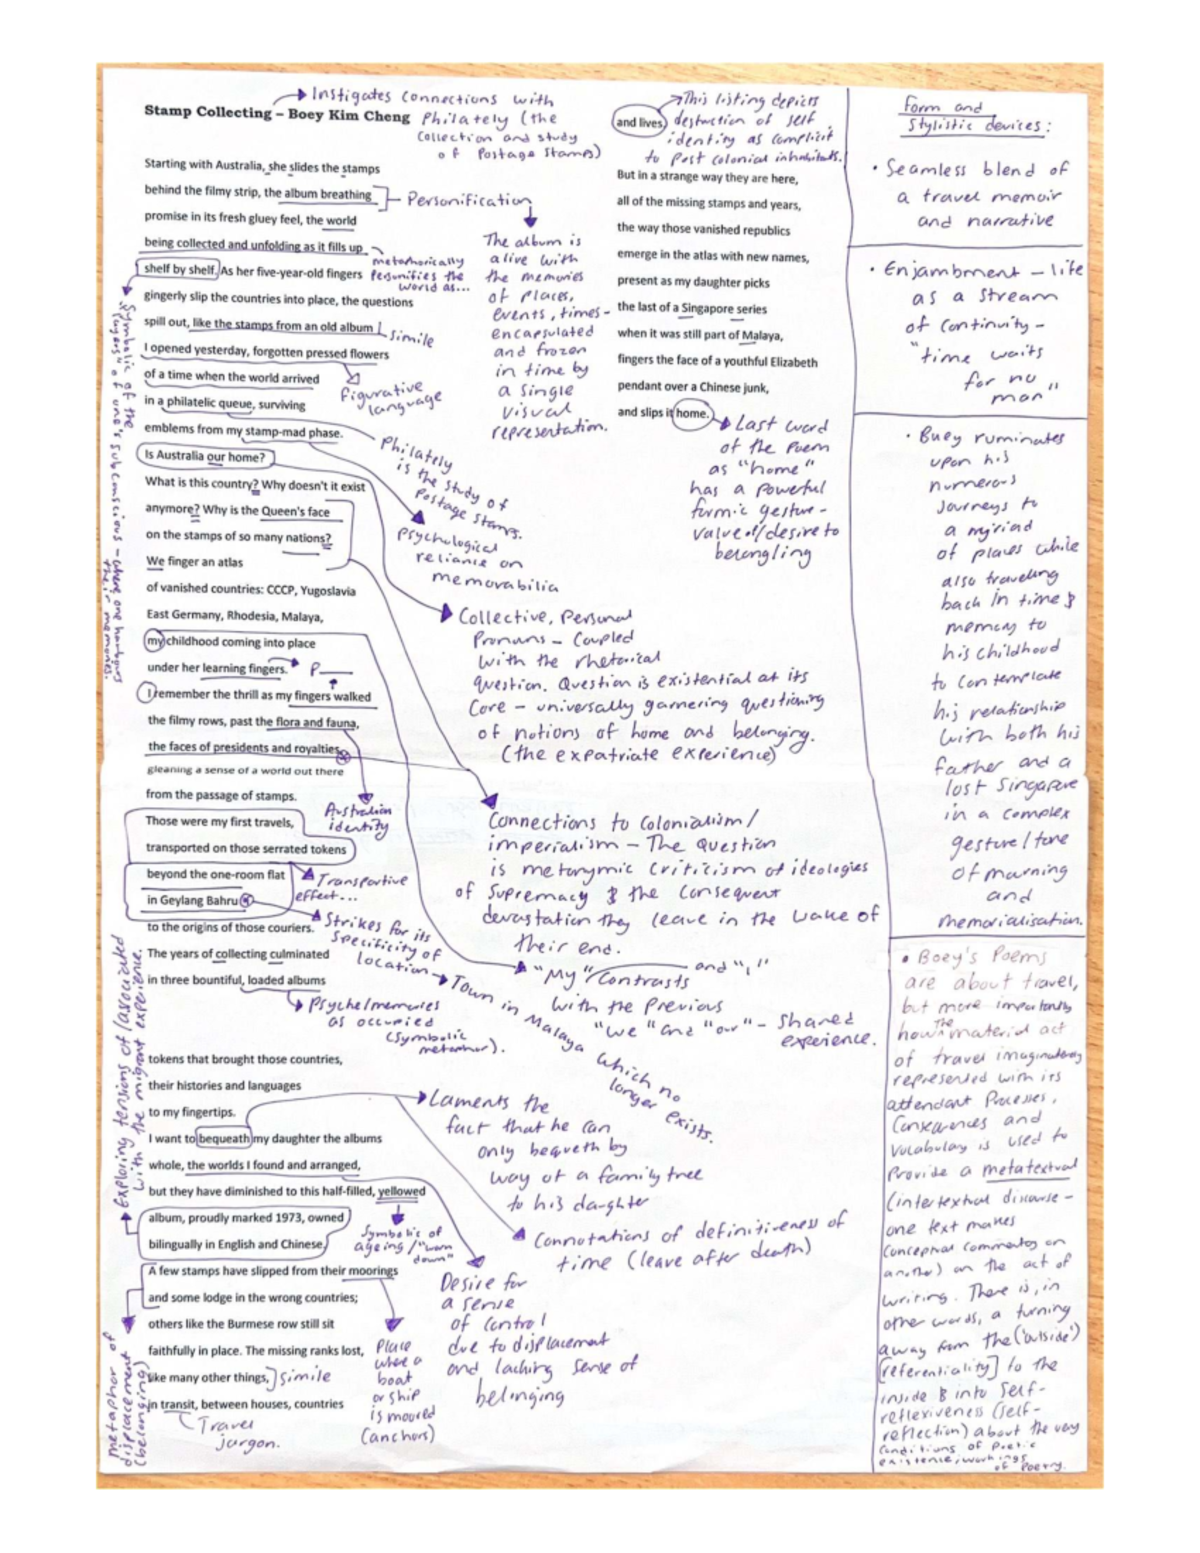 Stamp Collecting – Boey Kim Cheng
Instigates connections with
Philately (the
collection and study
of Postage Stamps)
Starting with Australia, she slides the stamps
behind the filmy strip, the album breathing
promise in its fresh gluey feel, the world
being collected and unfolding as it fills up
shelf by shelf. As her five-year-old fingers
gingerly slip the countries into place, the questions
spill out, like the stamps from an old album
I opened yesterday, forgotten pressed flowers
of a time when the world arrived
in a philatelic queue, surviving
emblems from my stamp-mad phase.
Is Australia our home?
What is this country? Why doesn't it exist
anymore? Why is the Queen's face
on the stamps of so many nations?
We finger an atlas
of vanished countries: CCCP, Yugoslavia
East Germany, Rhodesia, Malaya,
my childhood coming into place
under her learning fingers.
I remember the thrill as my fingers walked
the filmy rows, past the flora and fauna,
the faces of presidents and royalties
gleaning a sense of a world out there
from the passage of stamps.
Those were my first travels,
transported on those serrated tokens
beyond the one-room flat
in Geylang Bahru
to the origins of those couriers.
The years of collecting culminated
in three bountiful, loaded albums
tokens that brought those countries,
their histories and languages
to my fingertips.
I want to bequeath my daughter the albums
whole, the worlds I found and arranged,
but they have diminished to this half-filled, yellowed
album, proudly marked 1973, owned
bilingually in English and Chinese.
A few stamps have slipped from their moorings
and some lodge in the wrong countries;
others like the Burmese row still sit
faithfully in place. The missing ranks lost,
like many other things,
in transit, between houses, countries
Personification
The album is
alive with
the memories
of places,
events, times-
encapsulated
and frozen
in time by
a single
visual
representation.
metaphorically
Personifies the
world as...
Simile
figurative
language
Philately
is the study of
Postage Stamps.
Psychological
reliance on
memorabilia
Symbolic of the
"layers" of one's subconscious – where one harbours
their memories.
P
Collective, Personal
Pronuns – Coupled
with the rhetorical
question. Question is existential at its
Core – universally garnering questioning
of notions of home and belonging.
(the expatriate experience)
Australian
identity
Connections to Colonialism/
imperialism – The Question
is metonymic Criticism of ideologies
of Supremacy & the Consequent
devastation they leave in the wake of
their end.
Transportive
effect...
Strikes for its
Specificity of
location
Town in Malaya which no
longer exists.
"My" Contrasts and "I"
with the Previous
"we" and "our" – Shared
experience.
Psyche/memories
as occupied
(Symbolic
metaphor).
Exploring tensions of/associated
with the migrant experience.
Laments the
fact that he can
only bequeth by
way of a family tree
to his daughter
Connotations of definitiveness of
time (leave after death)
Symbolic of
ageing/"worn
down"
Desire for
a sense
of Control
due to displacement
and lacking sense of
belonging
Place
where a
boat
or ship
is moored
(anchors)
simile
Travel
jargon.
metaphor of
displacement
(belonging)
and lives.
This listing depicts
destruction of self
identity as complicit
to post colonial inhabitants.
But in a strange way they are here,
all of the missing stamps and years,
the way those vanished republics
emerge in the atlas with new names,
present as my daughter picks
the last of a Singapore series
when it was still part of Malaya,
fingers the face of a youthful Elizabeth
pendant over a Chinese junk,
and slips it home.
Last word
of the Poem
as "home"
has a powerful
formic gesture-
value of/desire to
belongling
Form and
Stylistic devices:
• Seamless blend of
a travel memoir
and narrative
• Enjambment – life
as a stream
of continuity –
"time waits
for no
man"
• Buey ruminates
upon his
numerous
Journeys to
a myriad
of places while
also traveling
back in time &
memory to
his childhood
to contemplate
his relationship
with both his
father and a
lost Singapore
in a complex
gesture/tone
of mourning
and
memorialisation.
• Boey's Poems
are about travel,
but more importantly
how the material act
of travel imaginatively
represented with its
attendant Processes,
Consequences and
Vocabulary is used to
Provide a metatextual
(intertextual discourse –
one text makes
conceptual commentary on
another) on the act of
writing. There is, in
other words, a turning
away from the ('outside')
[referentiality] to the
inside & into Self-
reflexiveness (self-
reflection) about the very
conditions of Poetic
existence/workings
of Poetry.